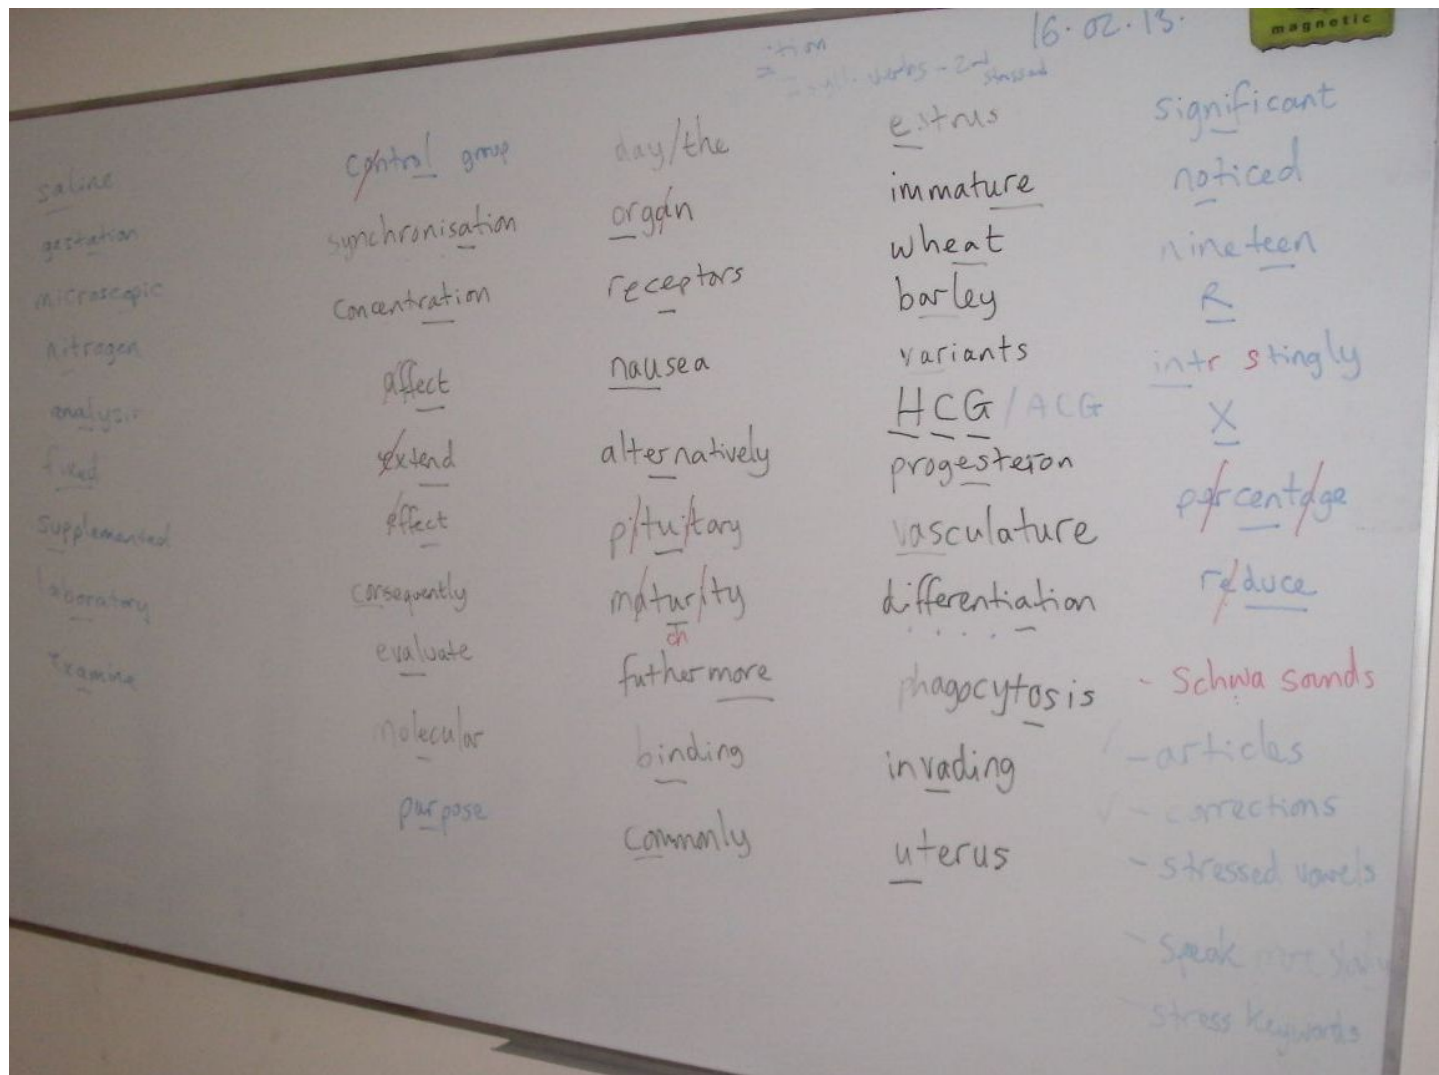 magnetic
16.02.13.
tion
verbs - 2nd
stressed
saline
gestation
microscopic
nitrogen
analysis
fixed
supplemented
laboratory
examine
control group
synchronisation
concentration
affect
extend
effect
consequently
evaluate
molecular
purpose
day/the
organ
receptors
nausea
alternatively
pituitary
maturity
ch
futhermore
binding
commonly
estrus
immature
wheat
barley
variants
HCG / ACG
progesteron
vasculature
differentiation
phagocytosis
invading
uterus
significant
noticed
nineteen
R
intr stingly
X
percentage
reduce
- Schwa sounds
- articles
- corrections
- stressed vowels
- speak more slowly
- stress keywords